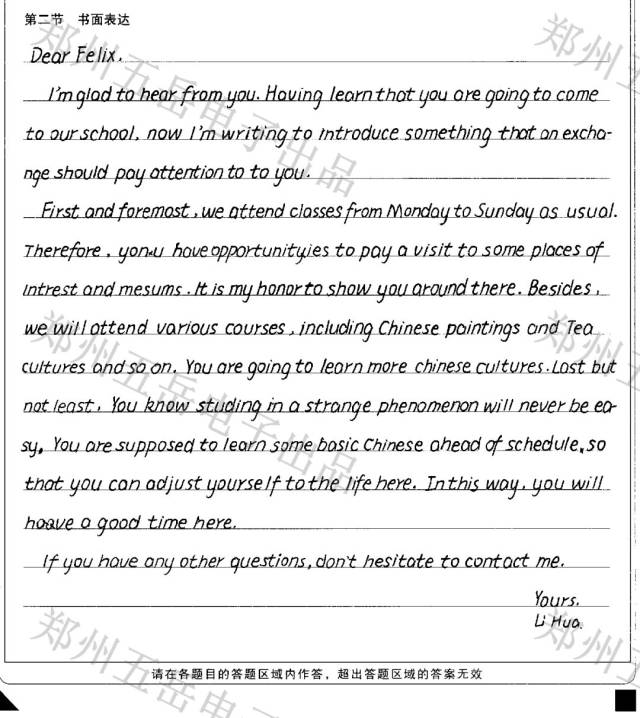 第二节 书面表达
Dear Felix,
I'm glad to hear from you. Having learn that you are going to come
to our school, now I'm writing to introduce something that an excha-
nge should pay attention to to you.
First and foremost, we attend classes from Monday to Sunday as usual.
Therefore, you have opportunityies to pay a visit to some places of
intrest and mesums. It is my honor to show you around there. Besides,
we will attend various courses, including Chinese paintings and Tea
cultures and so on. You are going to learn more chinese cultures. Last but
not least, You know studing in a strange phenomenon will never be ea-
sy, You are supposed to learn some basic Chinese ahead of schedule, so
that you can adjust yourself to the life here. In this way, you will
have a good time here.
If you have any other questions, don't hesitate to contact me.
Yours,
Li Hua.
请在各题目的答题区域内作答，超出答题区域的答案无效
郑州五岳电子出品
郑州五岳电子出品
郑州五
郑州五
郑州五岳电
郑州五